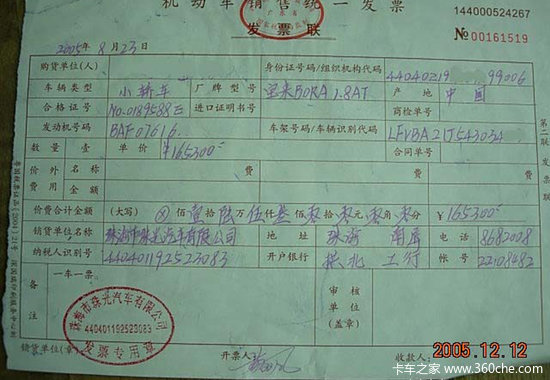 机动车销售统一发票
发票联
144000524267
No 00161519
2005年8月23日
购货单位(人) 身份证号码/组织机构代码 44040219 99006
车辆类型 小轿车 厂牌型号 宝来BORA 1.8AT 产地 中国
合格证号 No.0189588 进口证明书号 商检单号
发动机号码 BAF07616 车架号码/车辆识别代码 LFVBA21J543034
数量 壹 单价 ¥165300 合同单号
价外费用 名称 费
金额 费
价费合计金额 (大写) ⊗佰壹拾陆万伍仟叁佰零拾零元零角零分 ¥165300
销货单位名称 珠海市珠光汽车有限公司 地址 珠海 电话 8682008
纳税人识别号 440401192523083 开户银行 拱北工行 帐号 22108482
备注 一车一票 审核单位(盖章)
珠海市珠光汽车有限公司
440401192523083
发票专用章
销货单位(章) 开票人: 收款人:
2005.12.12
卡车之家 www.360che.com